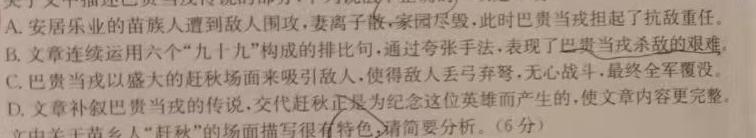 A. 安居乐业的苗族人遭到敌人围攻,妻离子散,家园尽毁,此时巴贵当戎担起了抗敌重任。
B. 文章连续运用六个“九十九”构成的排比句,通过夸张手法,表现了巴贵当戎杀敌的艰难。
C. 巴贵当戎以盛大的赶秋场面来吸引敌人,使得敌人丢弓弃弩,无心战斗,最终全军覆没。
D. 文章补叙巴贵当戎的传说,交代赶秋正是为纪念这位英雄而产生的,使文章内容更完整。
文中关于苗乡人“赶秋”的场面描写很有特色,请简要分析。(6分)